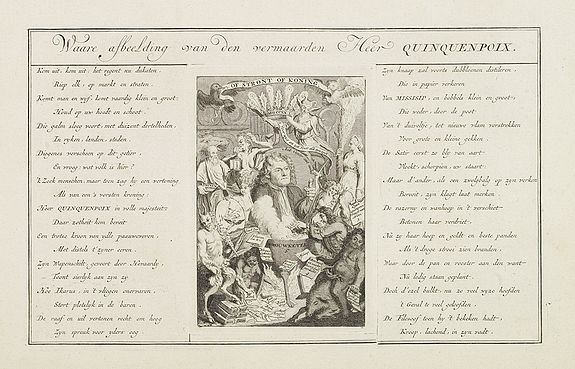 Waare afbeelding van den vermaarden Heer QUINQUENPOIX.
Kom uit, kom uit, het regent nu dukaten,
Riep elk, op markt en straten.
Komt man en wyf, komt vaardig klein en groot;
Houd op uw hoedt en schoot.
Die galm sloeg voort, met duizent dertelheden,
In ryken, landen, steden.
Diogenes verscheen op dit getier
En vroeg: wat volk is hier?
't Zoek menschen, maar toen zag hy een vertening
Als van een's vorsten kroning:
Heer QUINQUENPOIX in volle majesteit:
Daar zotheit hem bereit
Een trotse kroon van
Met distels t'zyner eeren.
Zyn Wapenschilt, gevoert door
Toont sierlyk aan zyn zy
Hoe Ikarus, in 't vliegen onervaren,
Stort plotslyk in de baren.
De raaf en uil vertonen recht om hoog
Zyn spreuk voor yders oog
OF STRONT OF KONING
BOUWKETEL
Zyn knaap zal voorts dubbloenen distileren,
Die in papier verkeren
Van MISSISIP, en bobbels klein en groot;
Die weder, door de poot
Van 't duiveltje, tot nieuwe vlam verstrekken
Voor grote en kleine gekken.
De Satir eerst ze blp van aart;
Vloekt, scherpien, uw staart:
Maar d'ander, als een zwelgbalg op zyn verken
Bevuit, zyn klagt laat merken.
De razerny en wanhoop in 't verschiet
Betonen haar verdriet.
Nu zy haar hoop en geldt en beste panden
Als 't droge stroo zien branden,
Waar door de pan en rooster aan den want
Nu ledig staan geplant.
Doch d'ezel bulkt, nu ze veel wyze hoofden
't Geval te veel geloofden.
De Filosoof toen hy 't bekeken hadt,
Kroop, lachend, in zyn vadt.